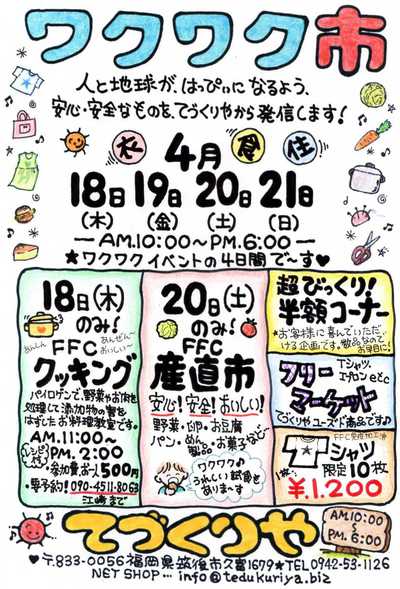 ワクワク市
人と地球が、はっぴぃになるよう、
安心・安全なものを、てづくりやから発信します!
衣 4月 食 住
18日 19日 20日 21日
(木) (金) (土) (日)
ーAM.10:00〜PM.6:00ー
★ワクワクイベントの4日間で〜す♥
18日(木)
のみ!
あんしん あんぜん〜
おいしい〜
FFC
クッキング
パイロゲンで、野菜やお肉を
処理して添加物の害を
はずしたお料理教室です。
AM.11:00〜
PM.2:00
レシピ付
・参加費、お一人500円
・要予約! 090-4511-8063
江崎まで
20日(土)
のみ!
FFC
産直市
安心!安全!おいしい!
野菜・卵・お豆腐
パン・めん製品・お菓子など
ワクワク♪
うれしい試食も
ありま〜す
超びっくり!
半額コーナー
★お客様に喜んでいただ
ける企画です。製品なので
お早目に!
フリー
マーケット
Tシャツ、
エプロンetc
てづくりやユーズド商品です♪
FFC免疫加工済
Tシャツ
限定10枚
¥1.200
てづくりや
AM.10:00
〜
PM.6:00
♥〒833-0056福岡県筑後市久富1679★TEL0942-53-1126
NET SHOP… info@tedukuriya.biz